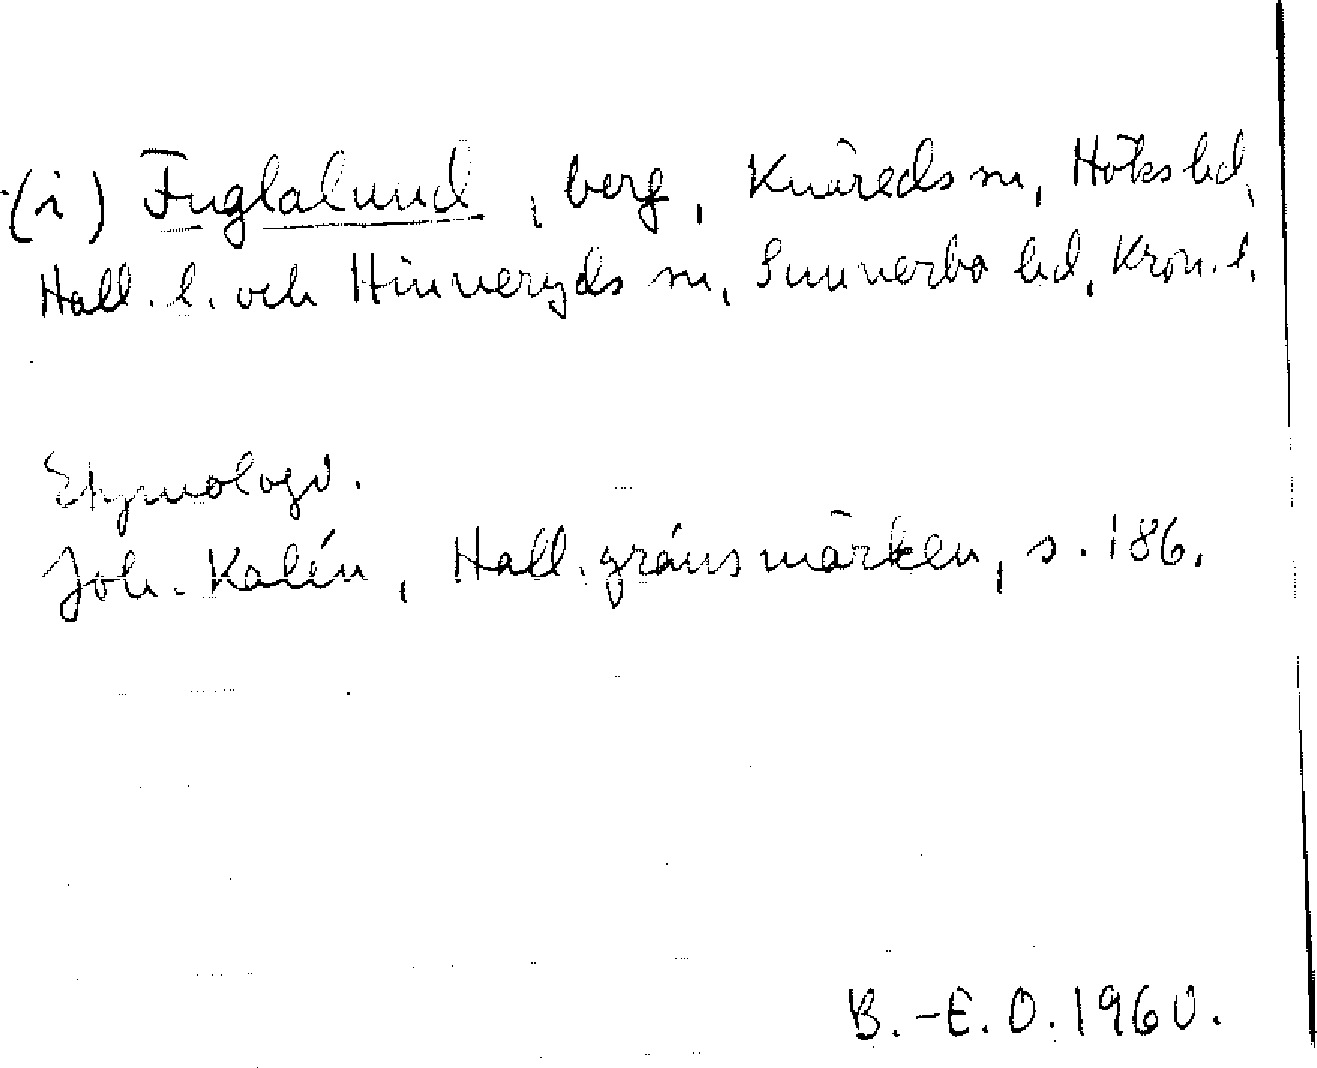 (i) Fuglalund, berg, Knäreds sn, Höks hd,
Hall. l. och Hinneryds sn, Sunnerbo hd, Kron. l.
Etymologi.
Joh. Kalén, Hall. gränsmärken, s. 186.
B.-E. O. 1960.